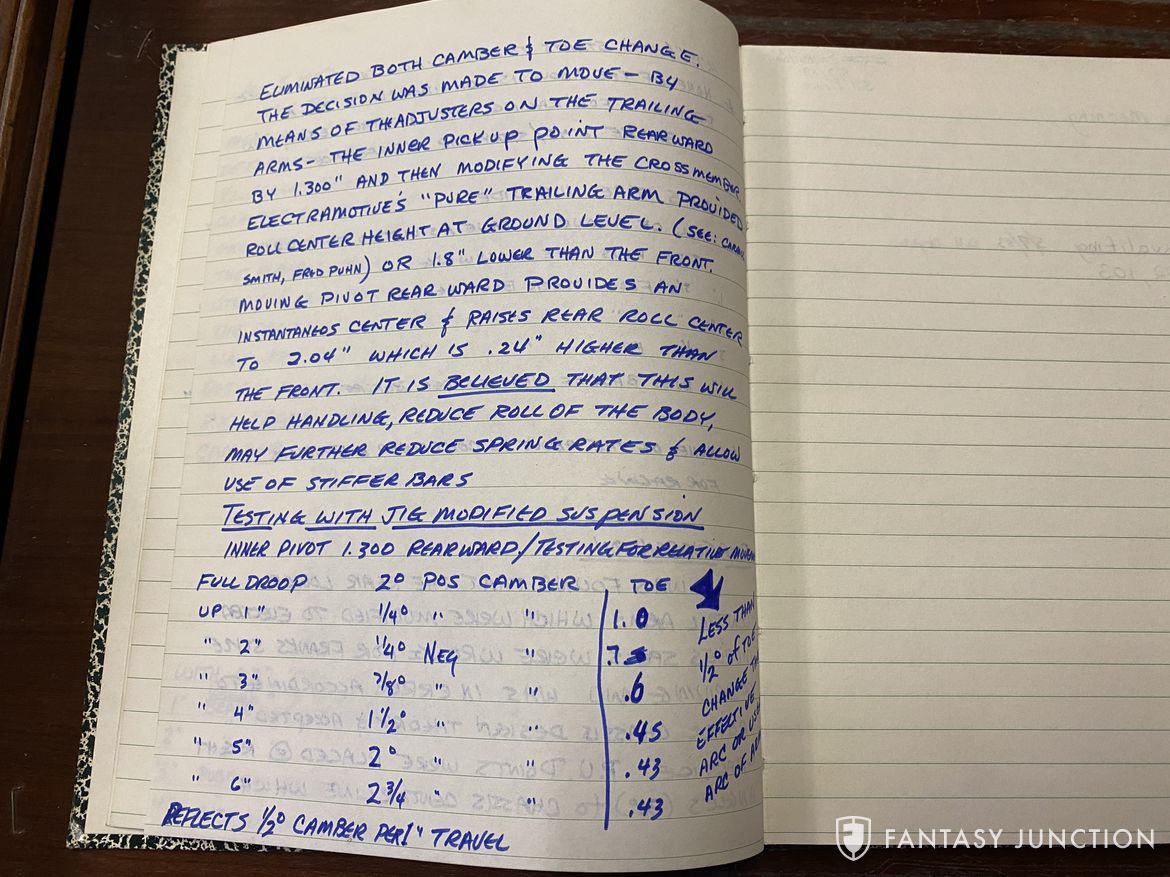 ELIMINATED BOTH CAMBER & TOE CHANGE.
THE DECISION WAS MADE TO MOVE - BY
MEANS OF THEADJUSTERS ON THE TRAILING
ARMS - THE INNER PICK UP POINT REARWARD
BY 1.300" AND THEN MODIFYING THE CROSSMEMBER.
ELECTRAMOTIVE'S "PURE" TRAILING ARM PROVIDED
ROLL CENTER HEIGHT AT GROUND LEVEL. (SEE: CARROLL
SMITH, FRED PUHN) OR 1.8" LOWER THAN THE FRONT.
MOVING PIVOT REARWARD PROVIDES AN
INSTANTANEOS CENTER & RAISES REAR ROLL CENTER
TO 2.04" WHICH IS .24" HIGHER THAN
THE FRONT. IT IS BELIEVED THAT THIS WILL
HELP HANDLING, REDUCE ROLL OF THE BODY,
MAY FURTHER REDUCE SPRING RATES & ALLOW
USE OF STIFFER BARS
TESTING WITH JIG MODIFIED SUSPENSION
INNER PIVOT 1.300 REARWARD/TESTING FOR RELATIVE
FULL DROOP 2° POS CAMBER TOE
UP 1" 1/4° " " 1.0
" 2" 1/4° NEG " .75
" 3" 7/8° " " .6
" 4" 1 1/2° " " .45
" 5" 2° " " .43
" 6" 2 3/4 " " .43
REFLECTS 1/2° CAMBER PER 1" TRAVEL
LESS THAN
1/2° of TOE
CHANGE
EFFECTIVE
ARC OR
ARC OF
Qualifying
FANTASY JUNCTION